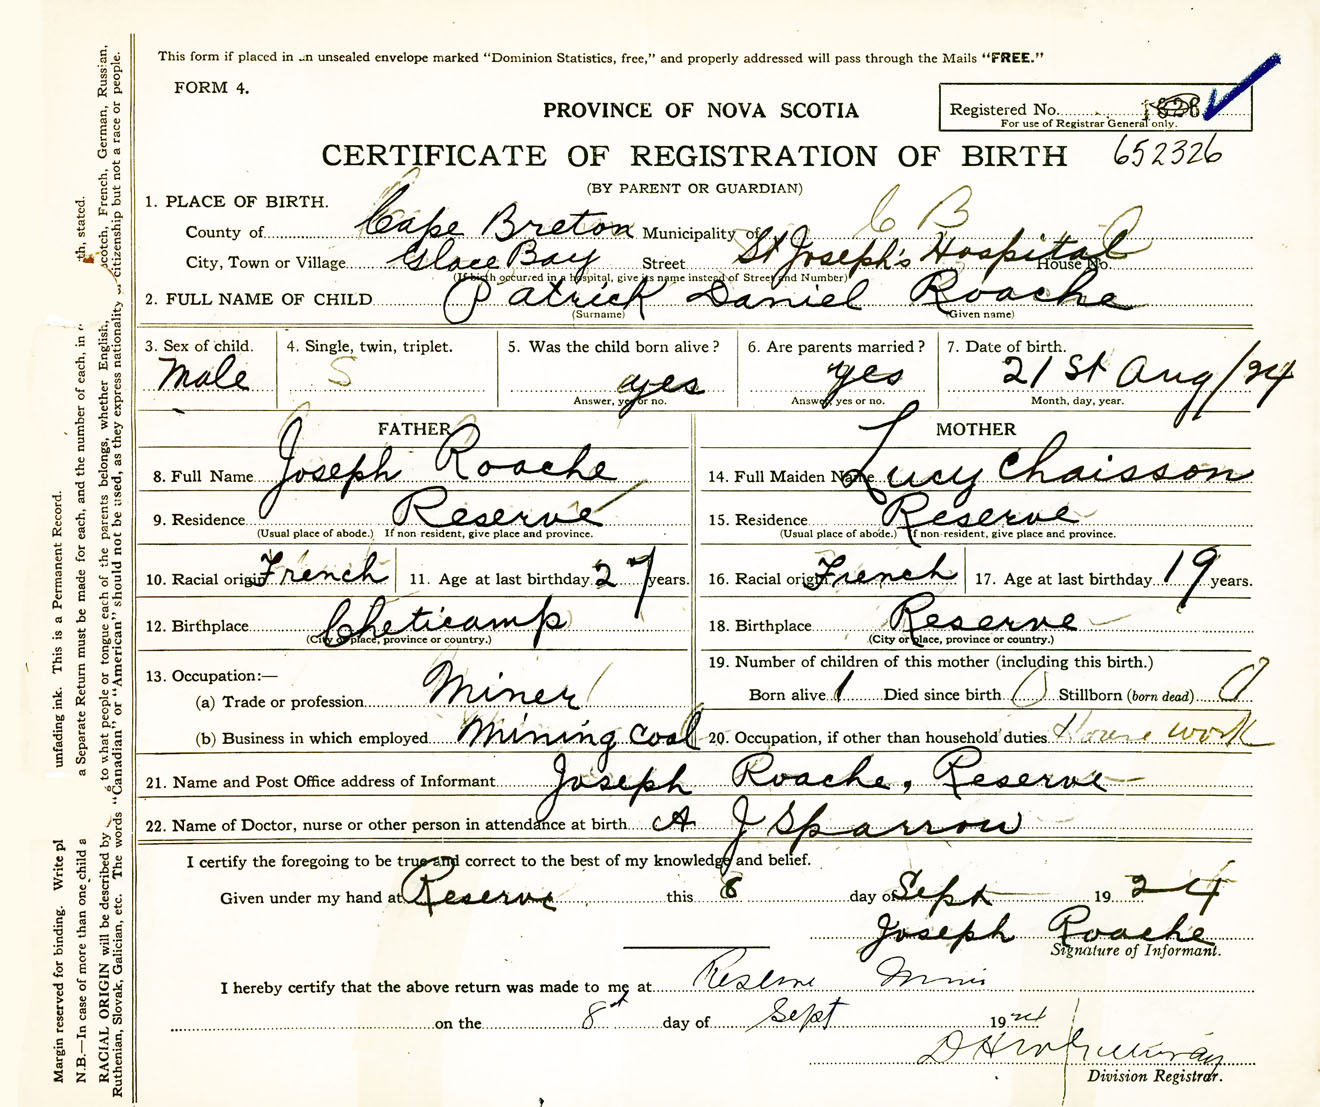 This form if placed in an unsealed envelope marked “Dominion Statistics, free,” and properly addressed will pass through the Mails “FREE.”
FORM 4.
PROVINCE OF NOVA SCOTIA
Registered No.
For use of Registrar General only.
CERTIFICATE OF REGISTRATION OF BIRTH 652326
(BY PARENT OR GUARDIAN)
1. PLACE OF BIRTH.
County of Cape Breton Municipality of C B
City, Town or Village Glace Bay Street St Joseph's Hospital House No.
(If birth occurred in a hospital, give its name instead of Street and Number)
2. FULL NAME OF CHILD Patrick Daniel Roache
(Surname) (Given name)
3. Sex of child. 4. Single, twin, triplet. 5. Was the child born alive? 6. Are parents married? 7. Date of birth.
Male S yes yes 21st Aug/24
Answer, yes or no. Answer, yes or no. Month, day, year.
FATHER MOTHER
8. Full Name Joseph Roache 14. Full Maiden Name Lucy Chaisson
9. Residence Reserve 15. Residence Reserve
(Usual place of abode.) If non resident, give place and province. (Usual place of abode.) If non-resident, give place and province.
10. Racial origin French 11. Age at last birthday 27 years. 16. Racial origin French 17. Age at last birthday 19 years.
12. Birthplace Cheticamp 18. Birthplace Reserve
(City or place, province or country.) (City or place, province or country.)
13. Occupation:— 19. Number of children of this mother (including this birth.)
(a) Trade or profession Miner Born alive 1 Died since birth 0 Stillborn (born dead) 0
(b) Business in which employed Mining coal 20. Occupation, if other than household duties House work
21. Name and Post Office address of Informant Joseph Roache, Reserve
22. Name of Doctor, nurse or other person in attendance at birth A J Sparrow
I certify the foregoing to be true and correct to the best of my knowledge and belief.
Given under my hand at Reserve this 8 day of Sept 1924
Joseph Roache
Signature of Informant.
I hereby certify that the above return was made to me at Reserve Mines
on the 8th day of Sept 1924
Division Registrar.
Margin reserved for binding. Write pl unfading ink. This is a Permanent Record.
N.B.—In case of more than one child a a Separate Return must be made for each, and the number of each, in th, stated.
RACIAL ORIGIN will be described by to what people or tongue each of the parents belongs, whether English, Scotch, French, German, Russian,
Ruthenian, Slovak, Galician, etc. The words “Canadian” or “American” should not be used, as they express nationality citizenship but not a race or people.